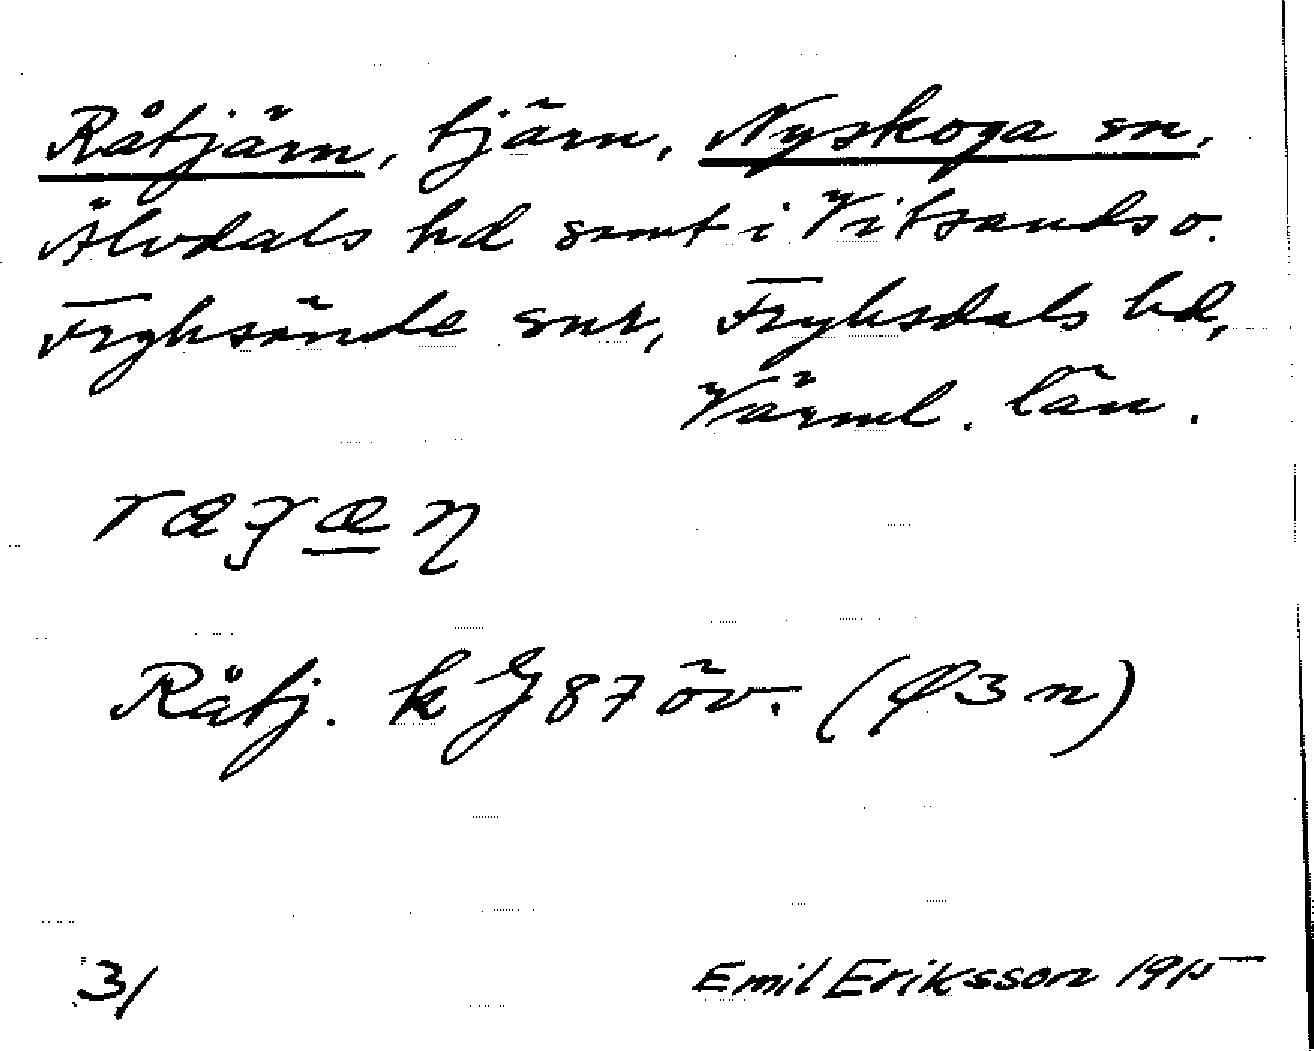 Råtjärn, tjärn, Nyskoga sn,
Älvdals hd samt i Vitsands o.
Fryksände snr, Fryksdals hd,
Värml. län.
Råtj. k G 87 öv. (Q3n)
31
Emil Eriksson 1915